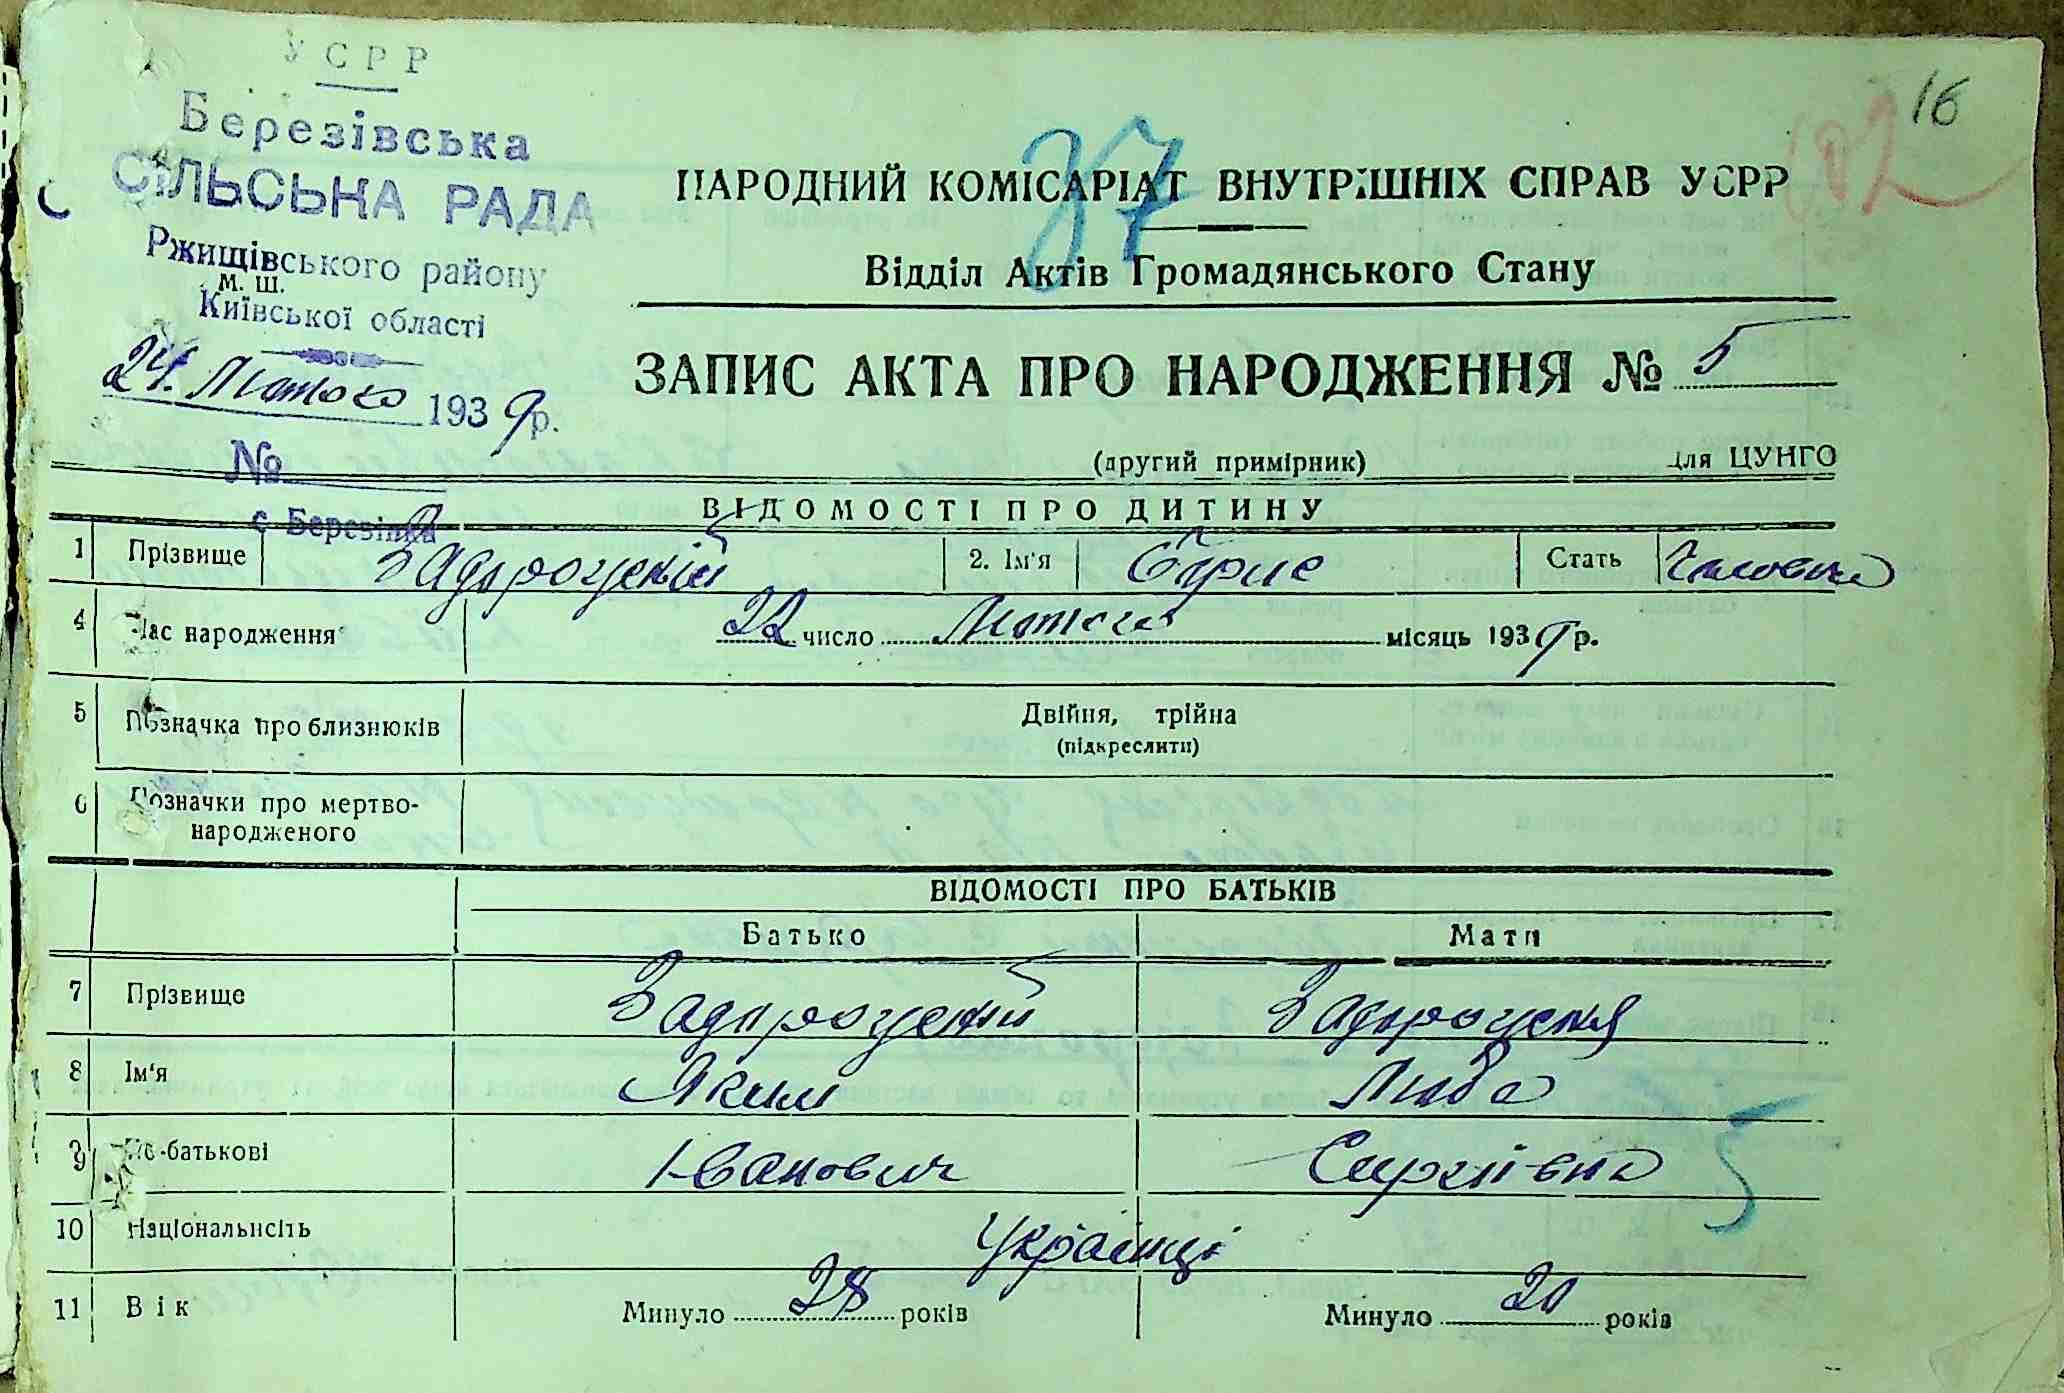 16
УСРР
Березівська
СІЛЬСЬКА РАДА
Ржищівського району
м. ш.
Київської області
24. Лютого 1939 р.
№
с Березівка
37
НАРОДНИЙ КОМІСАРІАТ ВНУТРІШНІХ СПРАВ УСРР
Відділ Актів Громадянського Стану
ЗАПИС АКТА ПРО НАРОДЖЕННЯ № 5
(другий примірник) Для ЦУНГО
ВІДОМОСТІ ПРО ДИТИНУ
1 Прізвище Задорожній 2. Ім'я Борис Стать Чоловіча
4 Час народження 22 число Лютого місяць 1939 р.
5 Позначка про близнюків Двійня, трійна
(підкреслити)
6 Позначки про мертво-
народженого
ВІДОМОСТІ ПРО БАТЬКІВ
Батько Мати
7 Прізвище Задорожній Задорожня
8 Ім'я Яким Люба
9 По-батькові Іванович Сергіївна
10 Національність Українці
11 Вік Минуло 28 років Минуло 20 років
5